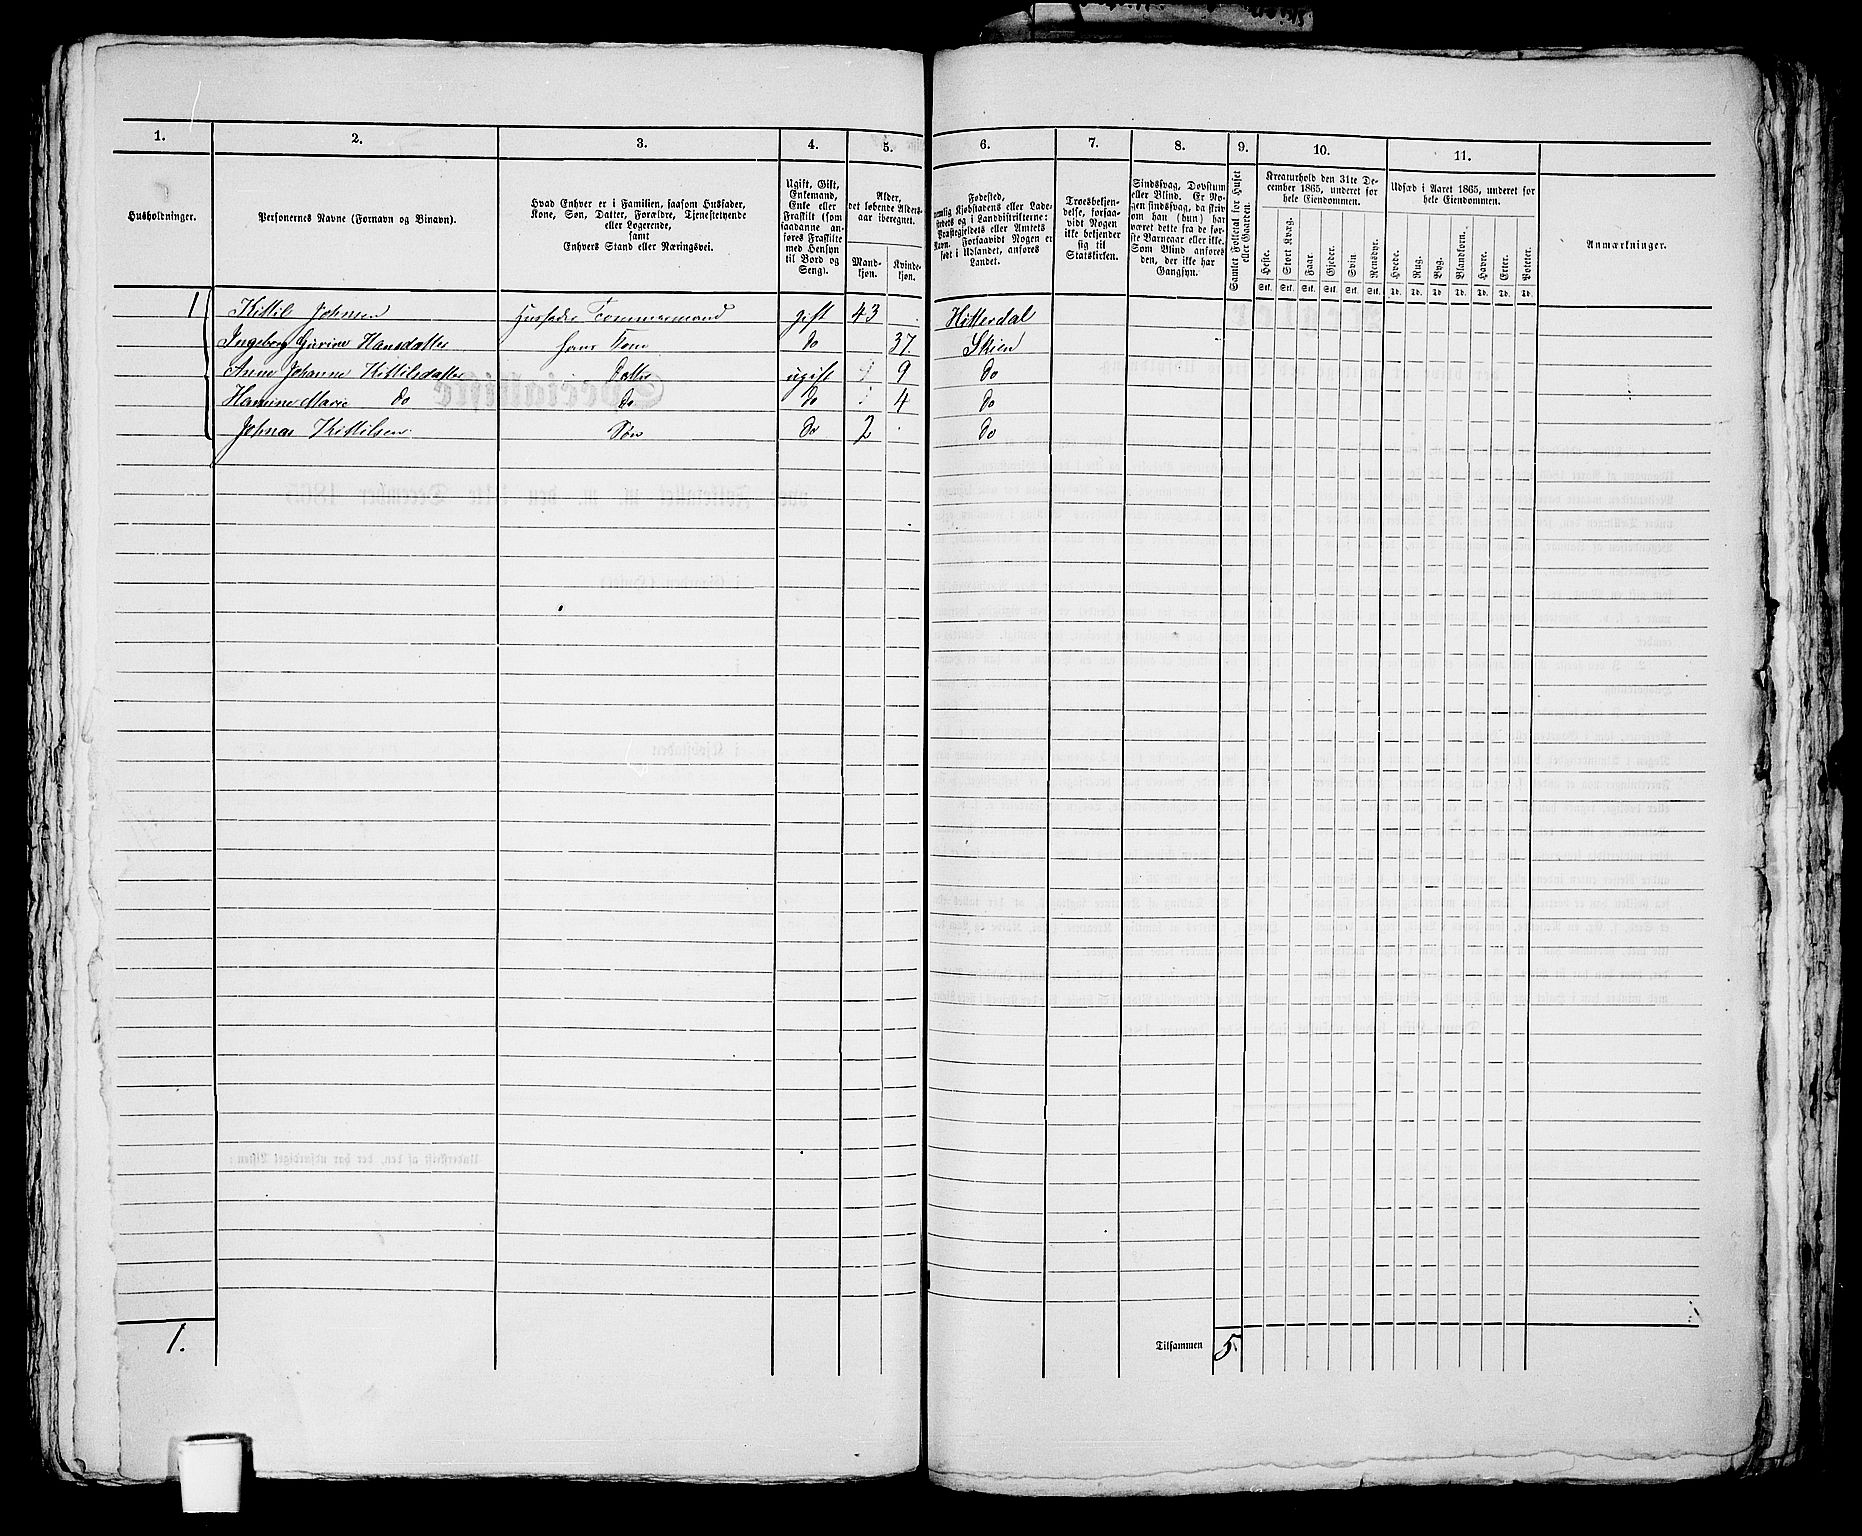 1. 2. 3. 4. 5. 6. 7. 8. 9. 10. 11.
Husholdninger.
Personernes Navne (Fornavn og Binavn).
Hvad Enhver er i Familien, saasom Husfader,
Kone, Søn, Datter, Forældre, Tjenestetyende
eller Logerende,
samt
Enhvers Stand eller Næringsvei.
Ugift, Gift,
Enkemand,
Enke eller
Fraskilt (som
saadanne an-
føres Fraskilte
med Hensyn
til Bord og
Seng).
Alder,
det løbende Alders-
aar iberegnet.
Mand-
kjøn.
Kvinde-
kjøn.
Fødested,
nemlig Kjøbstadens eller Lade-
stedets og i Landdistrikterne:
Præstegjeldets eller Amtets
Navn. Forsaavidt Nogen er
født i Udlandet, anføres
Landet.
Troesbekjen-
delse, forsaa-
vidt Nogen
ikke bekjender
sig til
Statskirken.
Sindssvag, Døvstum
eller Blind. Er No-
gen sindssvag, da skriv
om han (hun) har
været dette fra de før-
ste Barneaar eller ikke.
Som Blind anføres
den, der ikke har
Gangsyn.
Samlet Folketal for Huset
eller Gaarden.
Kreaturhold den 31te De-
cember 1865, underet for
hele Eiendommen.
Heste. Stort Kvæg. Faar. Gjeder. Svin. Rensdyr.
Stk. Stk. Stk. Stk. Stk. Stk.
Udsæd i Aaret 1865, underet for
hele Eiendommen.
Hvede. Rug. Byg. Blandkorn. Havre. Erter. Poteter.
Td. Td. Td. Td. Td. Td. Td.
Anmærkninger.
1 Kittil Johnsen Husfader Tømmermand gift 43 Hitterdal
Ingeborg Gurine Hansdatter hans Kone do 37 Skien
Anne Johanne Kittilsdatter Datter ugift 9 do
Hanine Marie do do do 4 do
Johnas Kittilsen Søn do 2 do
1. Tilsammen 5.